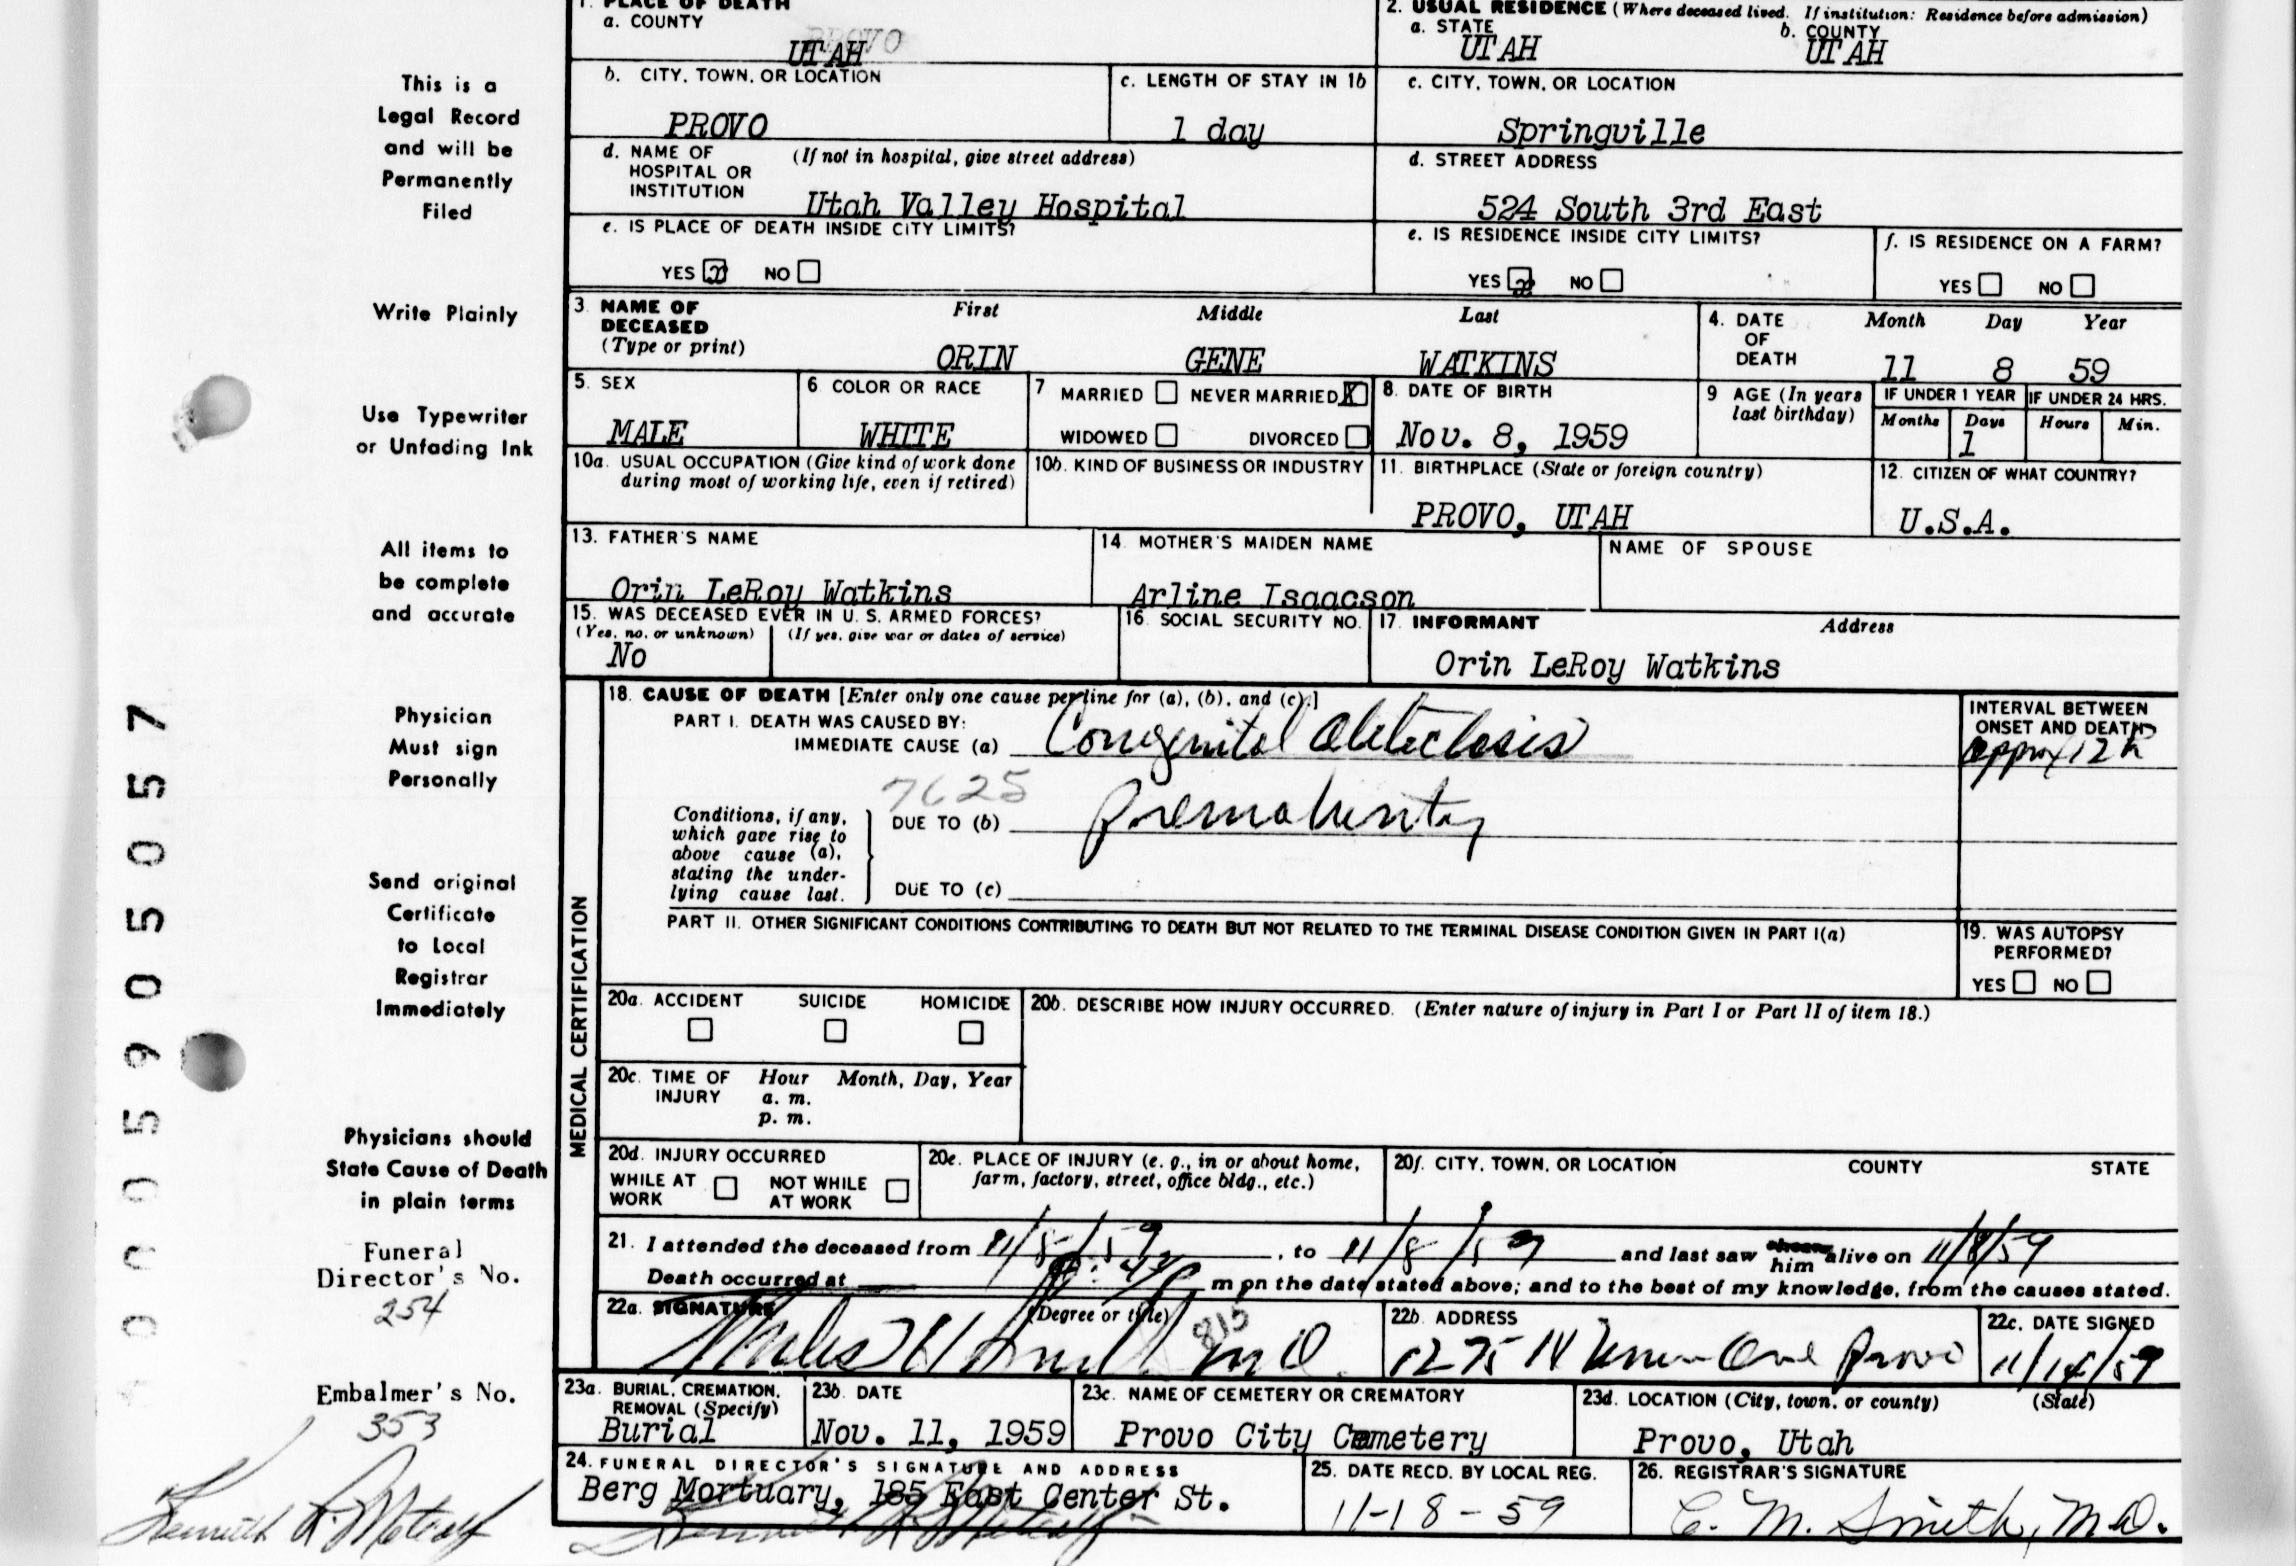 1. PLACE OF DEATH
a. COUNTY
PROVO
UTAH
2. USUAL RESIDENCE (Where deceased lived. If institution: Residence before admission)
a. STATE
UTAH
b. COUNTY
UTAH
This is a
Legal Record
and will be
Permanently
Filed
b. CITY, TOWN, OR LOCATION
PROVO
c. LENGTH OF STAY IN 1b
1 day
c. CITY, TOWN, OR LOCATION
Springville
d. NAME OF HOSPITAL OR INSTITUTION
(If not in hospital, give street address)
Utah Valley Hospital
d. STREET ADDRESS
524 South 3rd East
e. IS PLACE OF DEATH INSIDE CITY LIMITS?
YES x NO
e. IS RESIDENCE INSIDE CITY LIMITS?
YES x NO
f. IS RESIDENCE ON A FARM?
YES NO
Write Plainly
3. NAME OF DECEASED
(Type or print)
First Middle Last
ORIN GENE WATKINS
4. DATE OF DEATH
Month Day Year
11 8 59
Use Typewriter
or Unfading Ink
5. SEX
MALE
6 COLOR OR RACE
WHITE
7 MARRIED NEVER MARRIED X
WIDOWED DIVORCED
8. DATE OF BIRTH
Nov. 8, 1959
9 AGE (In years last birthday)
IF UNDER 1 YEAR IF UNDER 24 HRS.
Months Days Hours Min.
1
10a. USUAL OCCUPATION (Give kind of work done
during most of working life, even if retired)
10b. KIND OF BUSINESS OR INDUSTRY
11. BIRTHPLACE (State or foreign country)
PROVO, UTAH
12. CITIZEN OF WHAT COUNTRY?
U.S.A.
All items to
be complete
and accurate
13. FATHER'S NAME
Orin LeRoy Watkins
14. MOTHER'S MAIDEN NAME
Arline Isaacson
NAME OF SPOUSE
15. WAS DECEASED EVER IN U. S. ARMED FORCES?
(Yes, no, or unknown) (If yes, give war or dates of service)
No
16. SOCIAL SECURITY NO.
17. INFORMANT Address
Orin LeRoy Watkins
Physician
Must sign
Personally
MEDICAL CERTIFICATION
18. CAUSE OF DEATH [Enter only one cause per line for (a), (b), and (c).]
PART I. DEATH WAS CAUSED BY:
IMMEDIATE CAUSE (a) Congenital Atelectasis
INTERVAL BETWEEN
ONSET AND DEATH
approx 12 h
7625
Conditions, if any,
which gave rise to
above cause (a),
stating the under-
lying cause last.
DUE TO (b) Prematurity
DUE TO (c)
Send original
Certificate
to Local
Registrar
Immediately
PART II. OTHER SIGNIFICANT CONDITIONS CONTRIBUTING TO DEATH BUT NOT RELATED TO THE TERMINAL DISEASE CONDITION GIVEN IN PART I(a)
19. WAS AUTOPSY
PERFORMED?
YES NO
20a. ACCIDENT SUICIDE HOMICIDE
20b. DESCRIBE HOW INJURY OCCURRED. (Enter nature of injury in Part I or Part II of item 18.)
20c. TIME OF INJURY
Hour Month, Day, Year
a. m.
p. m.
Physicians should
State Cause of Death
in plain terms
20d. INJURY OCCURRED
WHILE AT WORK NOT WHILE AT WORK
20e. PLACE OF INJURY (e. g., in or about home,
farm, factory, street, office bldg., etc.)
20f. CITY, TOWN, OR LOCATION COUNTY STATE
21. I attended the deceased from 11/8/59, to 11/8/59 and last saw him alive on 11/8/59
Death occurred at m on the date stated above; and to the best of my knowledge, from the causes stated.
Funeral
Director's No.
254
22a. SIGNATURE (Degree or title)
M.D.
815
22b. ADDRESS
1275 N Provo
22c. DATE SIGNED
Embalmer's No.
353
Kenneth R. Metcalf
23a. BURIAL, CREMATION,
REMOVAL (Specify)
Burial
23b. DATE
Nov. 11, 1959
23c. NAME OF CEMETERY OR CREMATORY
Provo City Cemetery
23d. LOCATION (City, town, or county) (State)
Provo, Utah
24. FUNERAL DIRECTOR'S SIGNATURE AND ADDRESS
Berg Mortuary, 185 East Center St.
Kenneth R. Metcalf
25. DATE RECD. BY LOCAL REG.
11-18-59
26. REGISTRAR'S SIGNATURE
C. M. Smith, M.D.